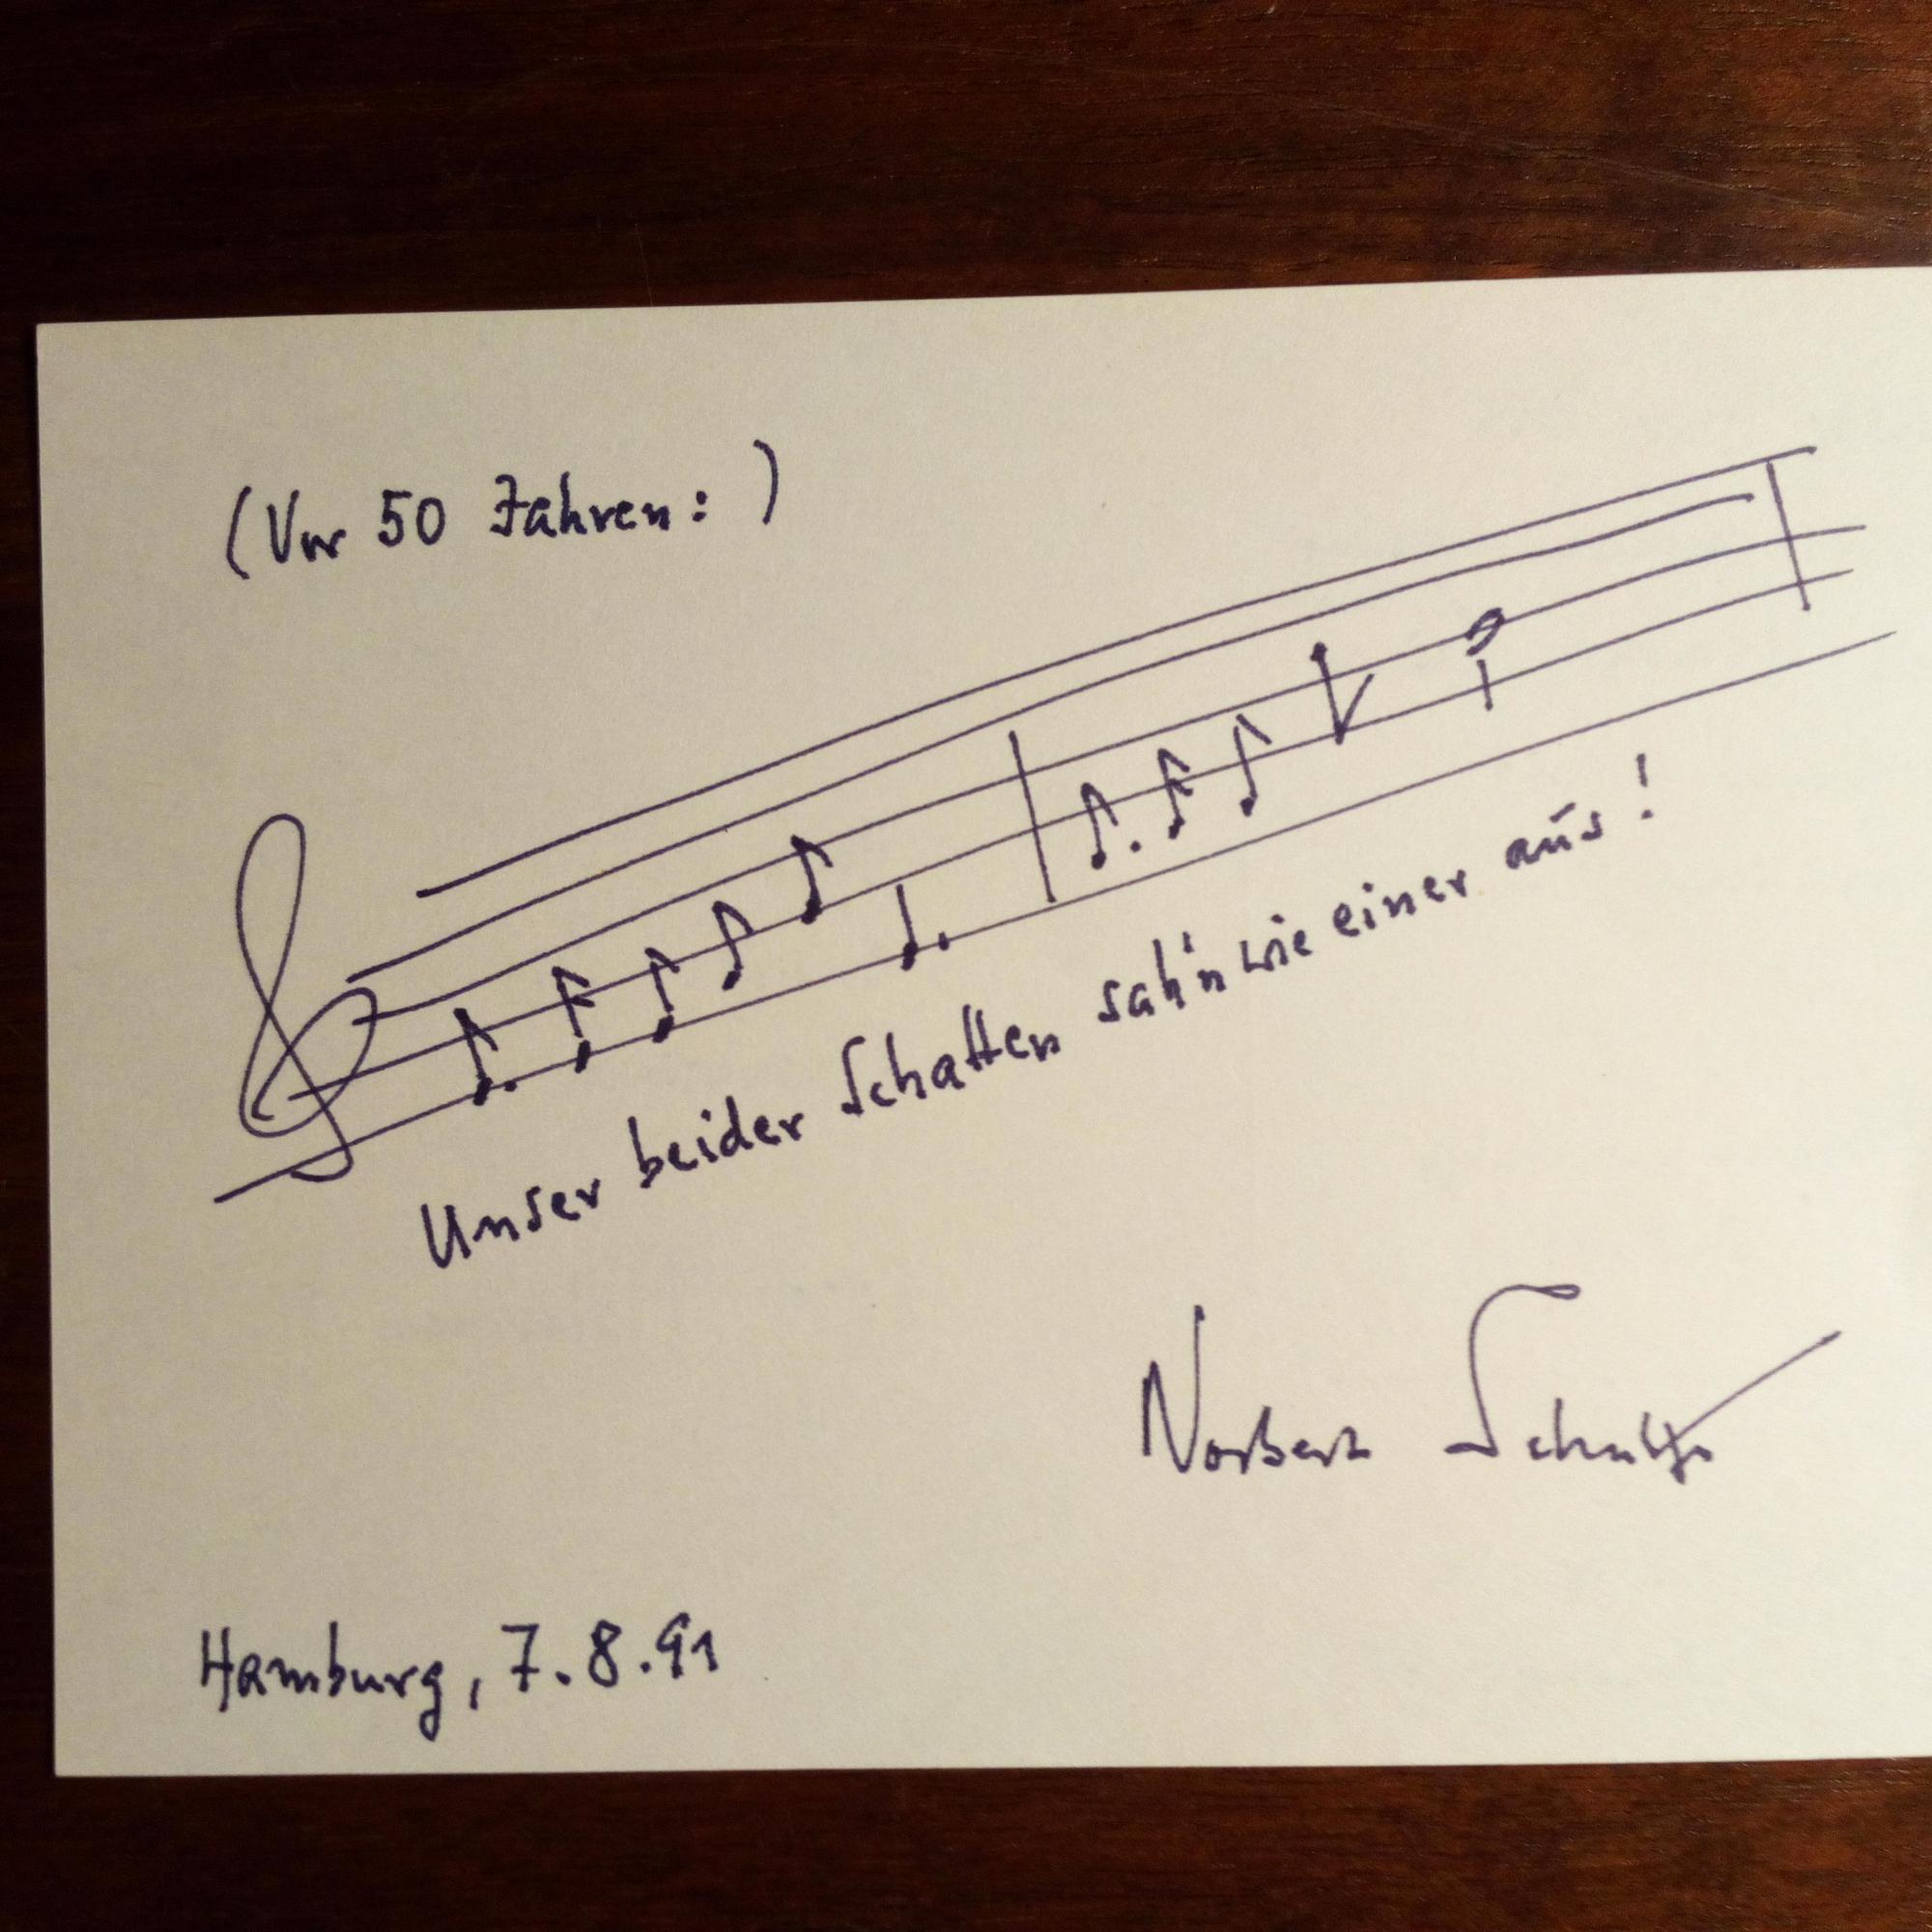 (Vor 50 Jahren: )
Unser beider Schatten sah'n wie einer aus!
Norbert Schultze
Hamburg, 7.8.91